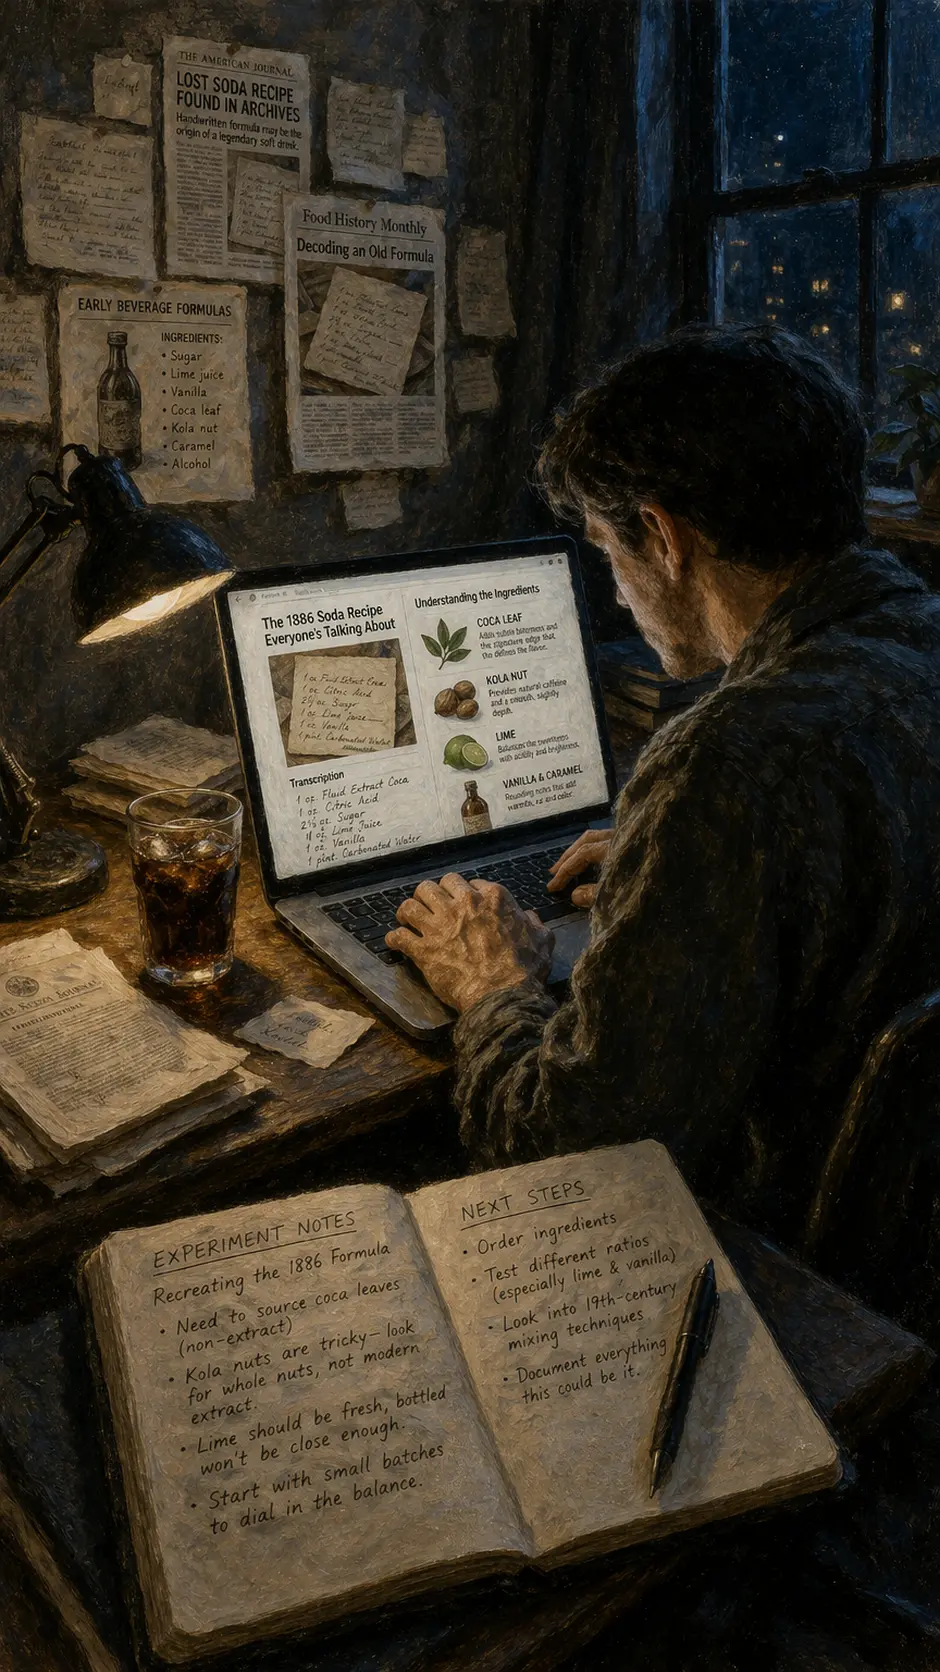 THE AMERICAN JOURNAL
LOST SODA RECIPE
FOUND IN ARCHIVES
Handwritten formula may be the
origin of a legendary soft drink.
Food History Monthly
Decoding an Old Formula
EARLY BEVERAGE FORMULAS
INGREDIENTS:
• Sugar
• Lime juice
• Vanilla
• Coca leaf
• Kola nut
• Caramel
• Alcohol
The 1886 Soda Recipe
Everyone's Talking About
1 oz Fluid Extract Coca
1 oz Citric Acid
2½ oz Sugar
1 oz Lime juice
1 oz Vanilla
1 pint Carbonated Water
Transcription
1 oz. Fluid Extract Coca
1 oz. Citric Acid
2½ oz. Sugar
oz. Lime Juice
1 oz. Vanilla
1 pint. Carbonated Water
Understanding the Ingredients
COCA LEAF
Adds subtle bitterness and
the signature edge that
the defines the flavor.
KOLA NUT
Provides natural caffeine
and a smooth, slightly
depth.
LIME
Balances the sweetness
with acidity and brightness.
VANILLA & CARAMEL
Rounding notes that add
warmth, and color.
EXPERIMENT NOTES
Recreating the 1886 Formula
• Need to source coca leaves
(non-extract)
• Kola nuts are tricky—look
for whole nuts, not modern
extract.
• Lime should be fresh, bottled
won't be close enough.
• Start with small batches
to dial in the balance.
NEXT STEPS
• Order ingredients
• Test different ratios
(especially lime & vanilla)
• Look into 19th-century
mixing techniques
• Document everything
this could be it.